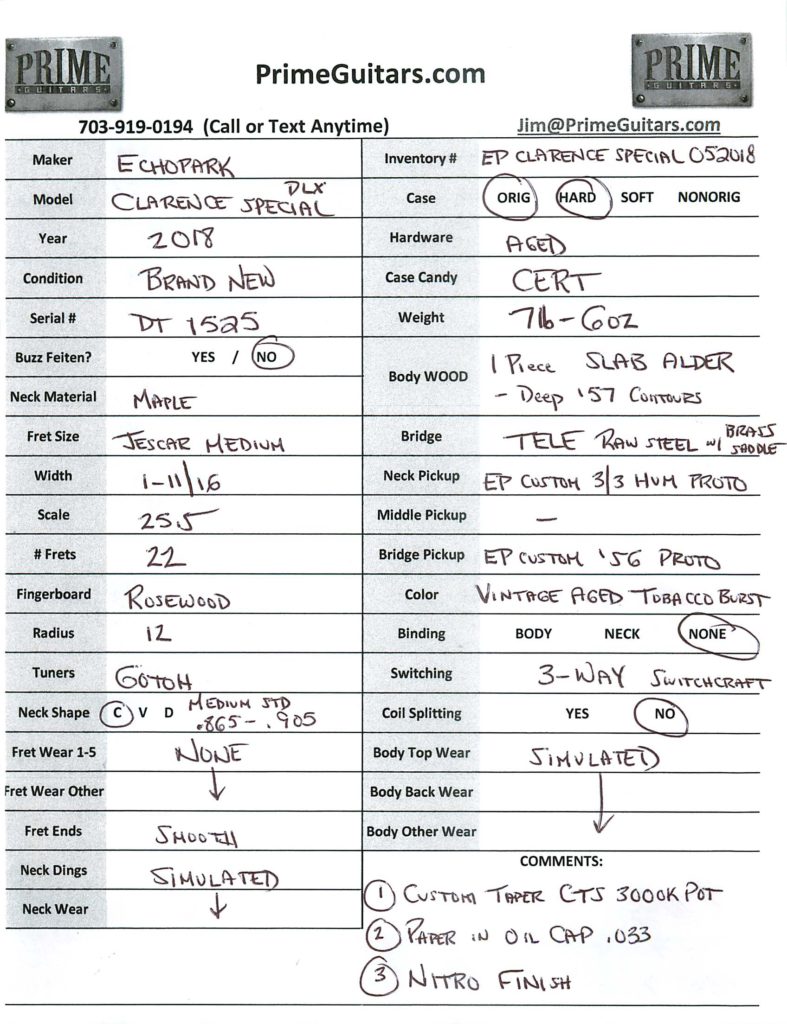 PRIME
GUITARS
PrimeGuitars.com
PRIME
GUITARS
703-919-0194 (Call or Text Anytime)
Jim@PrimeGuitars.com
Maker ECHOPARK
Model CLARENCE SPECIAL DLX
Year 2018
Condition BRAND NEW
Serial # DT 1525
Buzz Feiten? YES / NO
Neck Material MAPLE
Fret Size JESCAR MEDIUM
Width 1-11/16
Scale 25.5
# Frets 22
Fingerboard ROSEWOOD
Radius 12
Tuners GOTOH
Neck Shape C V D MEDIUM STD
.865-.905
Fret Wear 1-5 NONE
Fret Wear Other
Fret Ends SMOOTH
Neck Dings SIMULATED
Neck Wear
Inventory # EP CLARENCE SPECIAL 052018
Case ORIG HARD SOFT NONORIG
Hardware AGED
Case Candy CERT
Weight 7lb-6oz
Body WOOD 1 Piece SLAB ALDER
- Deep '57 CONTOURS
Bridge TELE RAW STEEL w/ BRASS SADDLE
Neck Pickup EP CUSTOM 3/3 HUM PROTO
Middle Pickup —
Bridge Pickup EP CUSTOM '56 PROTO
Color VINTAGE AGED TOBACCO BURST
Binding BODY NECK NONE
Switching 3-WAY SWITCHCRAFT
Coil Splitting YES NO
Body Top Wear SIMULATED
Body Back Wear
Body Other Wear
COMMENTS:
1 CUSTOM TAPER CTS 3000K POT
2 PAPER IN OIL CAP .033
3 NITRO FINISH